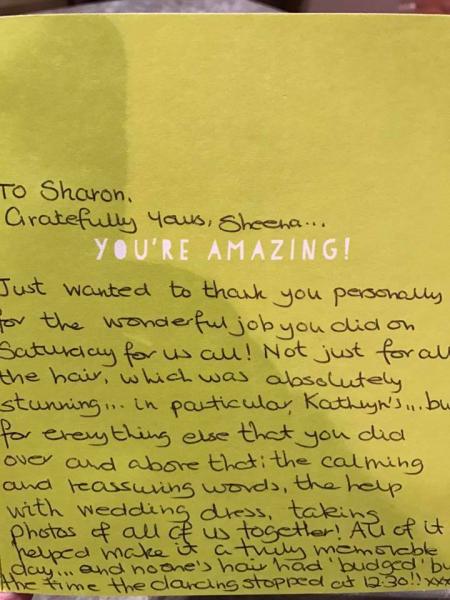 To Sharon,
Gratefully Yours, Sheena...
YOU'RE AMAZING!
Just wanted to thank you personally
for the wonderful job you did on
Saturday for us all! Not just for all
the hair, which was absolutely
stunning... in particular, Kathryn's... bu
for everything else that you did
over and above that: the calming
and reassuring words, the help
with wedding dress, taking
photos of all of us together! All of it
helped make it a truly memorable
day... and no one's hair had 'budged' by
the time the dancing stopped at 12:30!! xxx